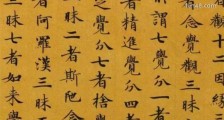 念覺觀三昧
所謂七覺分一者
者精進覺分四者
之覺分七者捨
三昧二者斯陀
者阿羅漢三昧
三昧七者如來